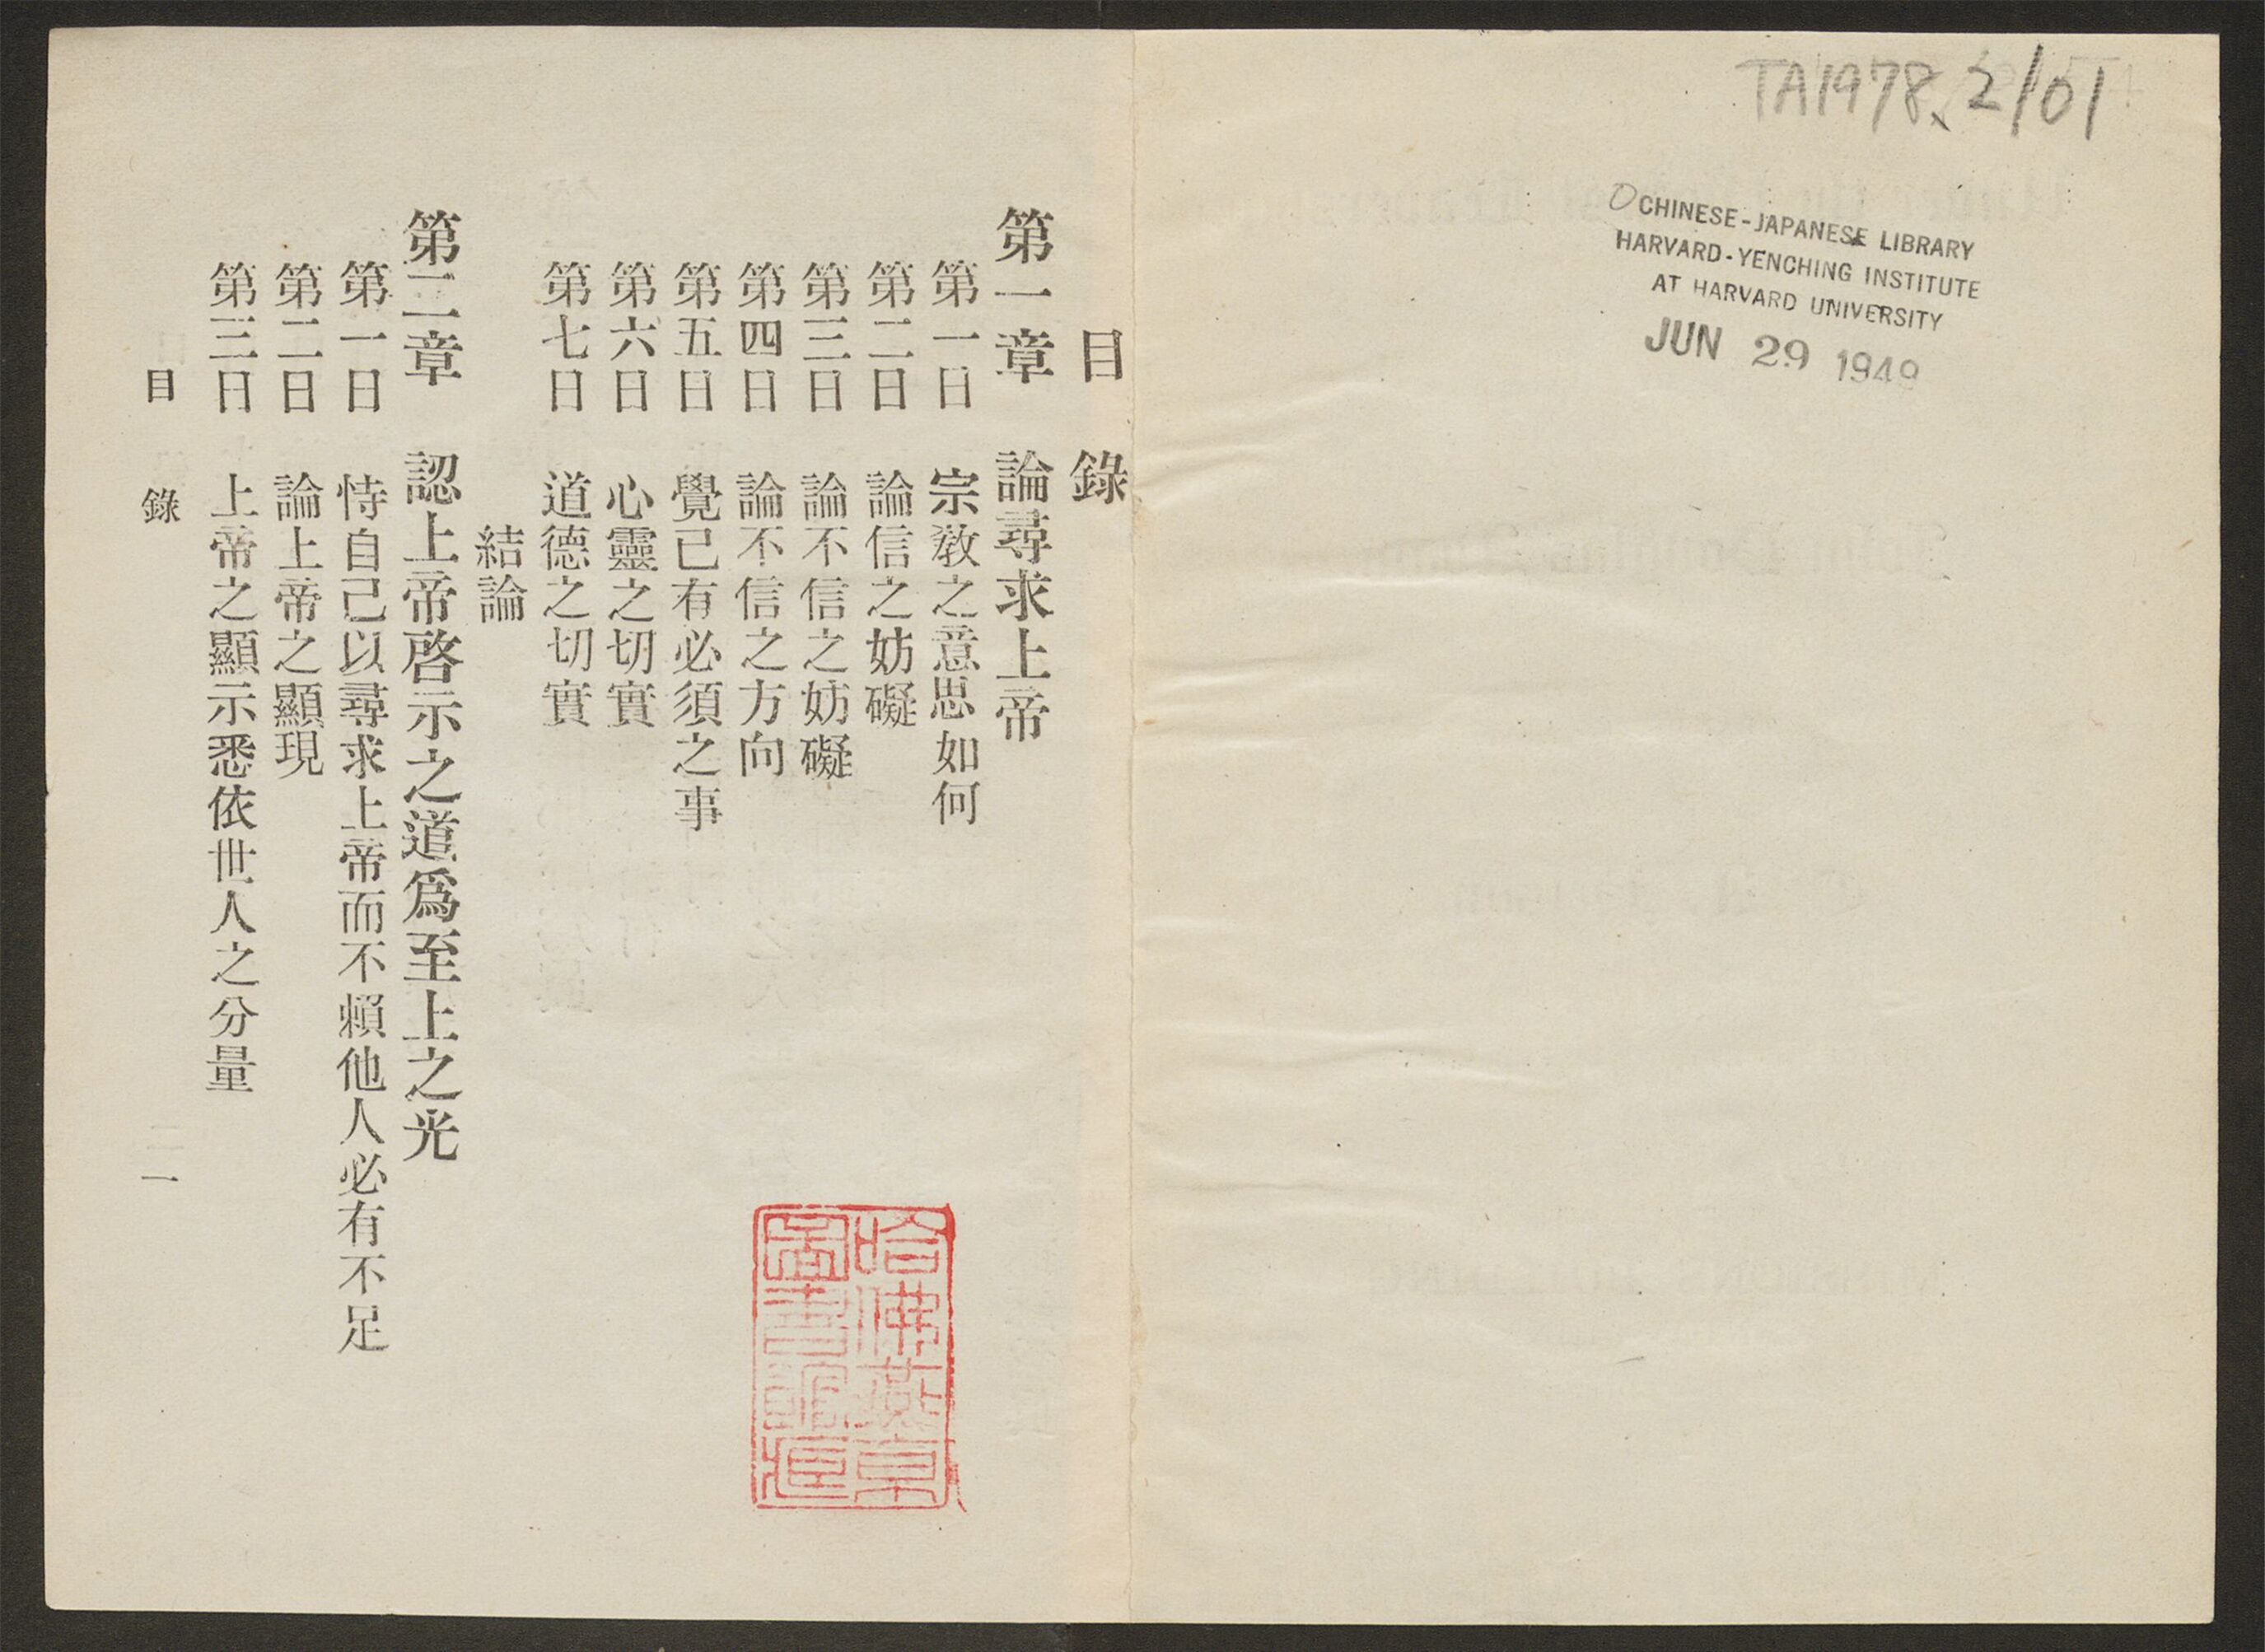 TA1978.2/01
CHINESE-JAPANESE LIBRARY
HARVARD-YENCHING INSTITUTE
AT HARVARD UNIVERSITY
JUN 29 1949
目錄
第一章 論尋求上帝
第一日 宗教之意思如何
第二日 論信之妨礙
第三日 論不信之妨礙
第四日 論不信之方向
第五日 覺已有必須之事
第六日 心靈之切實
第七日 道德之切實
結論
第二章 認上帝啓示之道爲至上之光
第一日 恃自己以尋求上帝而不賴他人必有不足
第二日 論上帝之顯現
第三日 上帝之顯示悉依世人之分量
目錄 一
哈佛燕京
圖書館藏